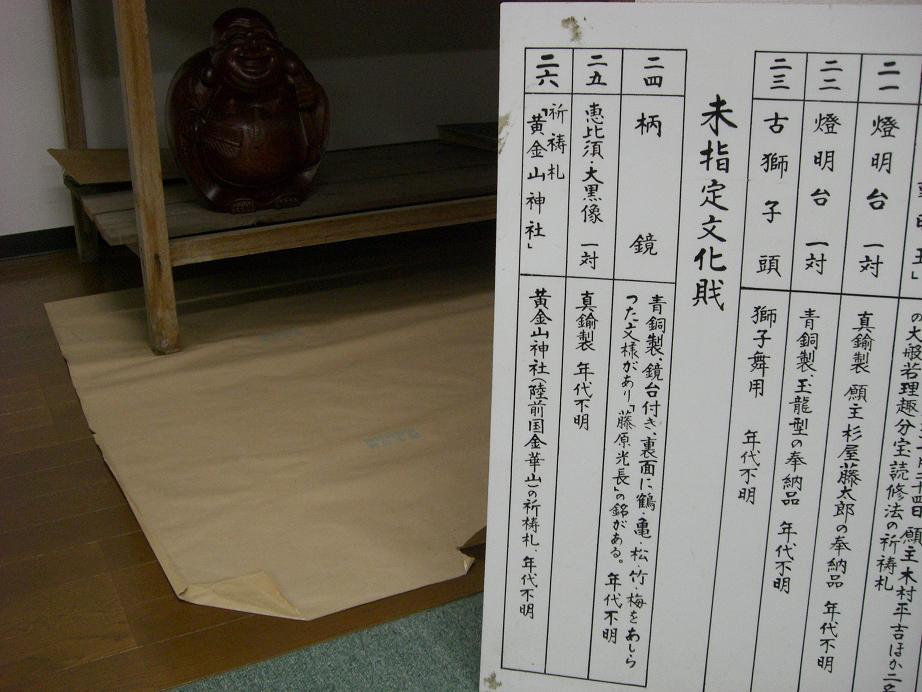 月二十四日 願主 木村平吉ほか二名
の大般若理趣分宝読修法の祈祷札
二一
燈明台 一対
真鍮製 願主 杉屋藤太郎の奉納品 年代不明
二二
燈明台 一対
青銅製、玉龍型の奉納品 年代不明
二三
古獅子頭
獅子舞用 年代不明
未指定文化戝
二四
柄鏡
青銅製、鏡台付き、裏面に鶴・亀・松・竹梅をあしら
った文様があり「藤原光長」の銘がある。年代不明
二五
恵比須・大黒像 一対
真鍮製 年代不明
二六
祈祷札
「黄金山神社」
黄金山神社(陸前国金華山)の祈祷札、年代不明